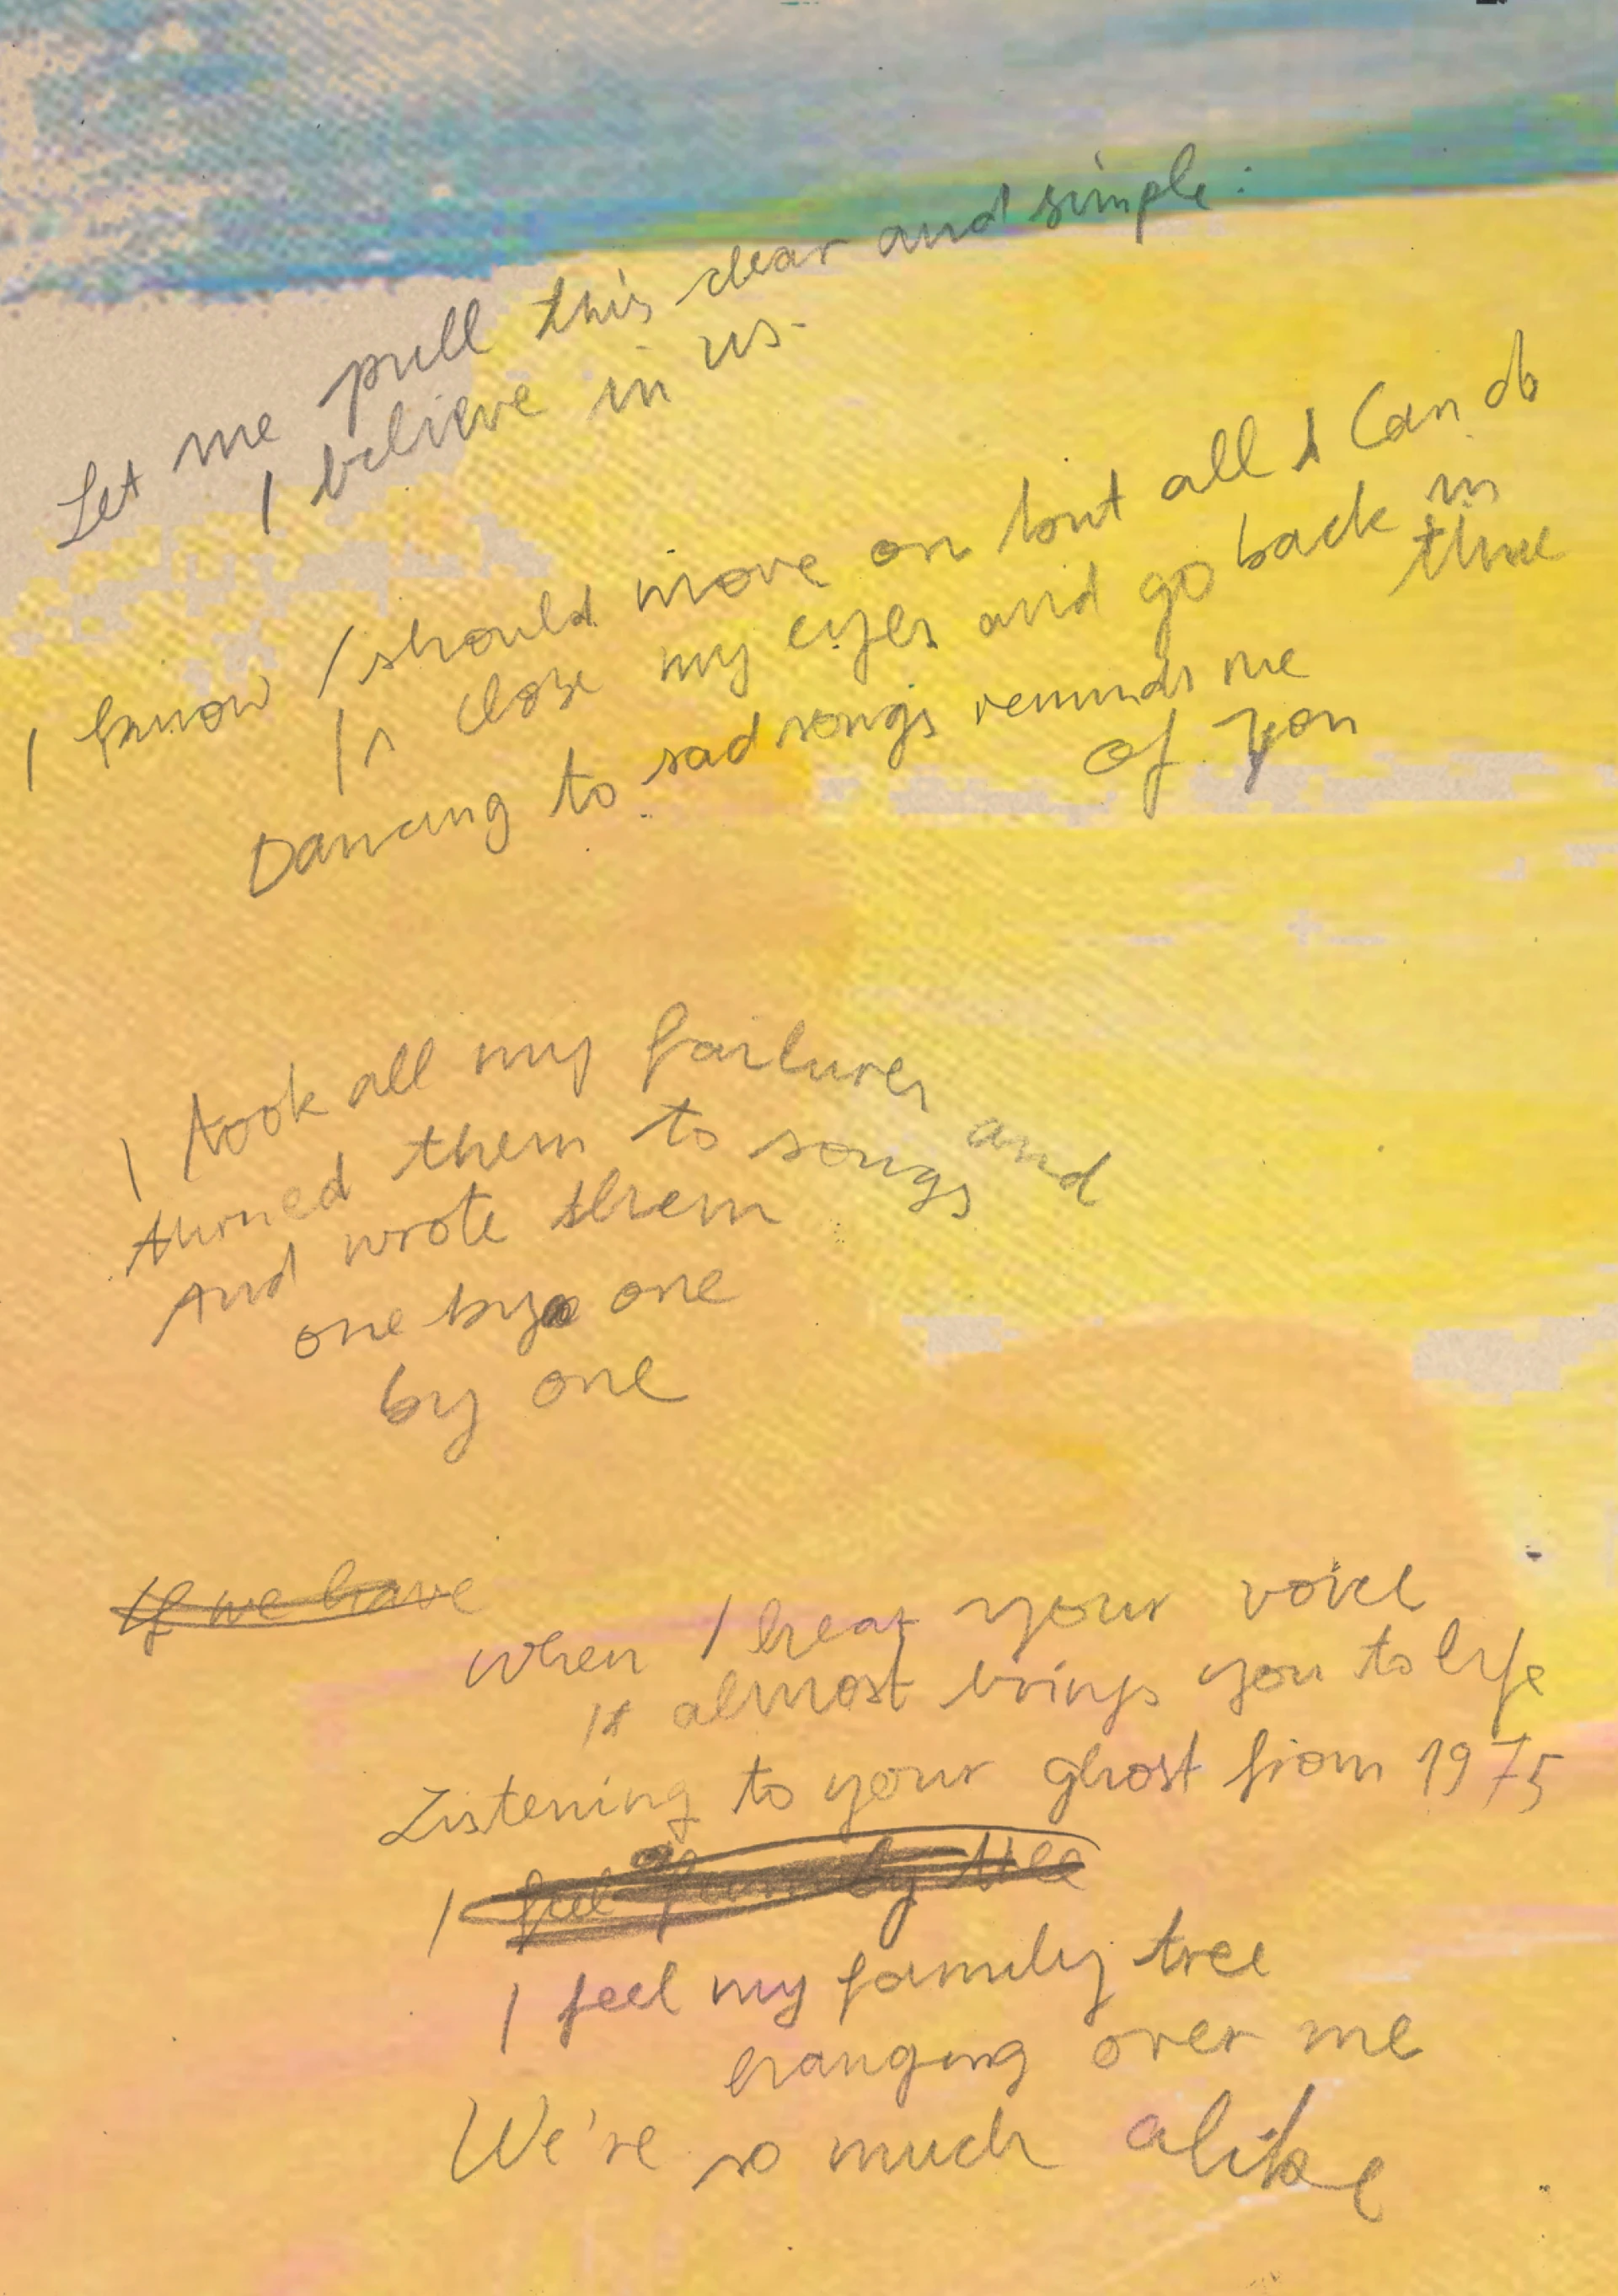 Let me pull this clear and simple:
I believe in us.
I know I should move on but all I can do
Is close my eyes and go back in
time
Dancing to sad songs reminds me
of you
I took all my failures and
turned them to songs
And wrote them
one by one
by one
If we have
When I hear your voice
It almost brings you to life
Listening to your ghost from 1975
I feel family tree
I feel my family tree
hanging over me
We're so much alike